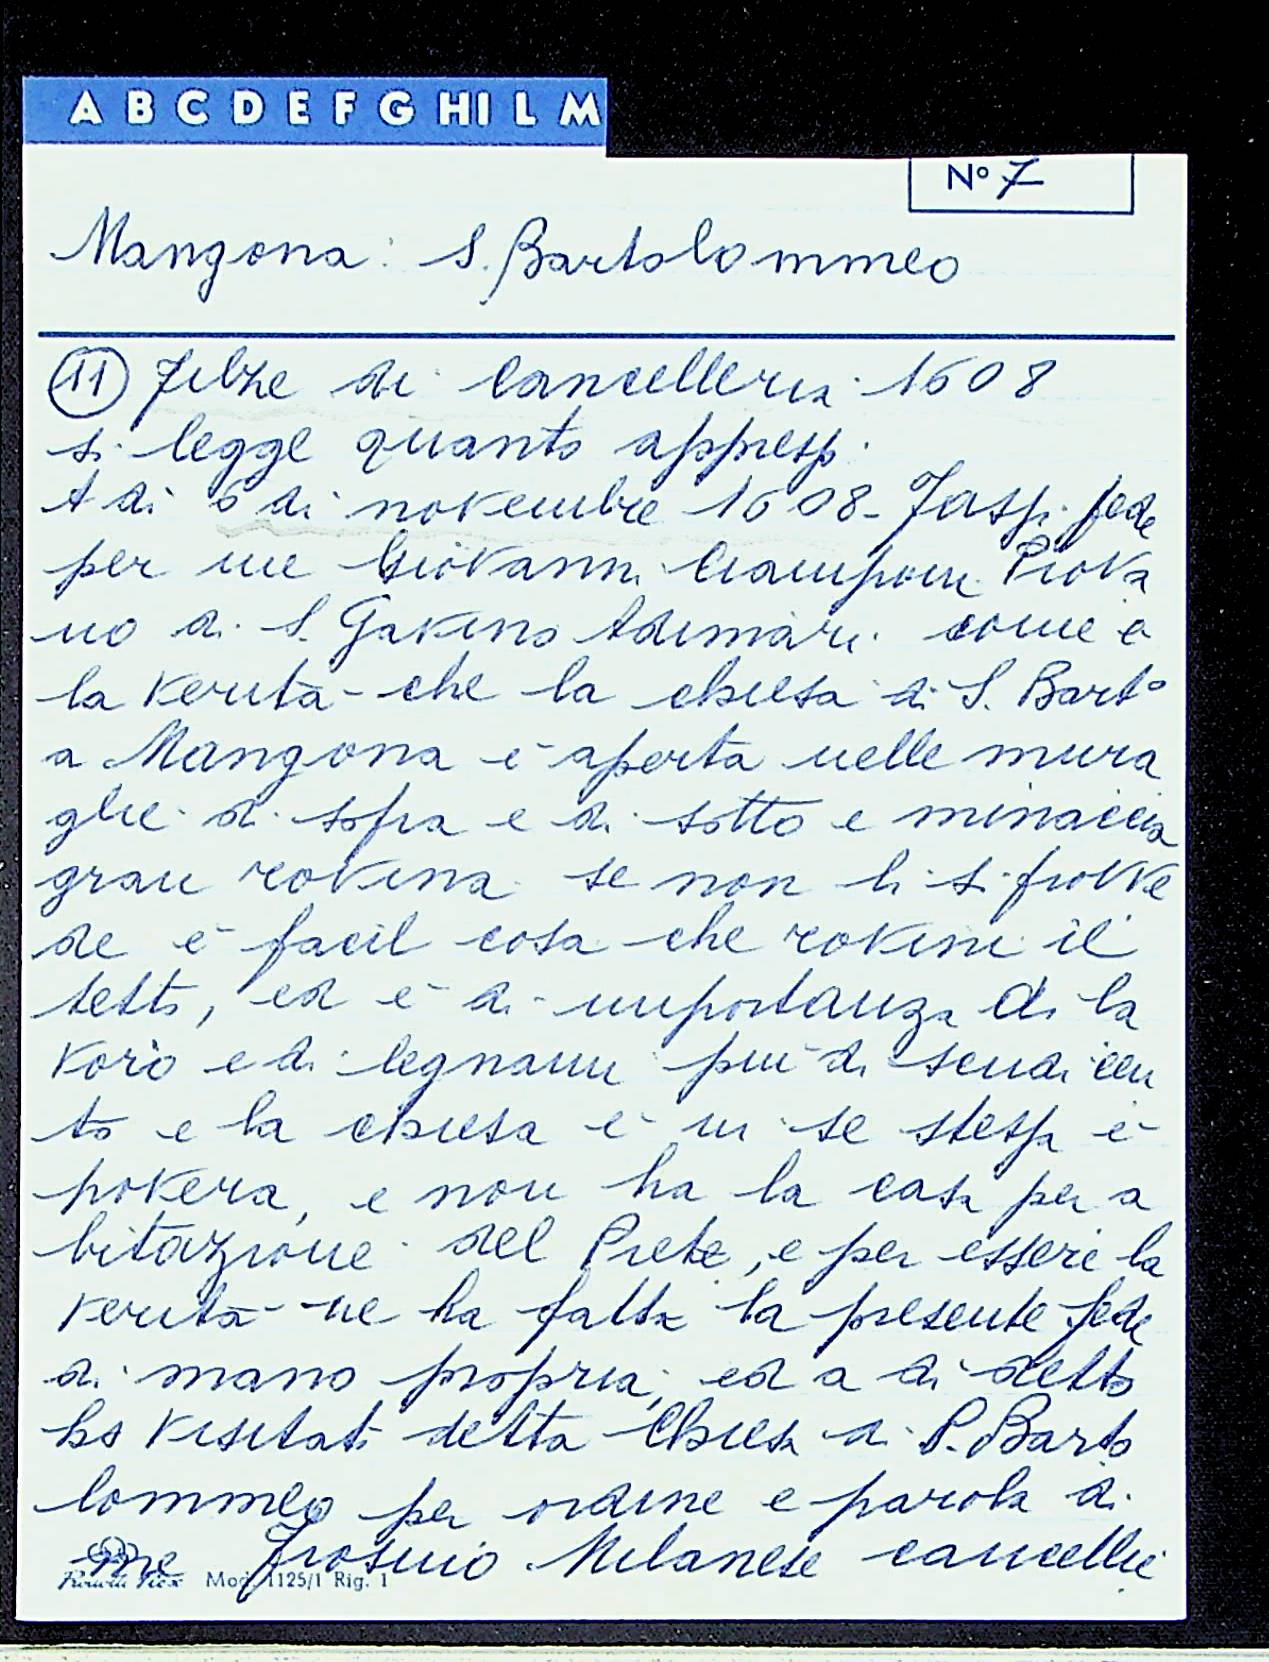 A B C D E F G H I L M
N° 7
Mangona: S. Bartolommeo
(11) Filze di Cancelleria 1608
si legge quanto appresso.
A di 6 di novembre 1608 - Fassi fede
per me Giovanni Ciamponi Piova
no di S. Gavino Adimari come è
la verità - che la chiesa di S. Bart°
a Mangona è aperta nelle mura
glie di sopra e di sotto e minaccia
gran rovina se non li si provve
de è facil cosa che rovini il
tetto, ed è di importanza di la
voro e di legnami più di scudi cen
to e la chiesa è in se stessa è
povera, e non ha la casa per a
bitazione del Prete, e per essere la
verità ne ha fatta la presente fede
di mano propria, ed a di detto
ho visitato detta Chiesa di S. Barto
lommeo per ordine e parola di
me Frosino Milanese cancellie
Mod. 1125/1 Rig. 1